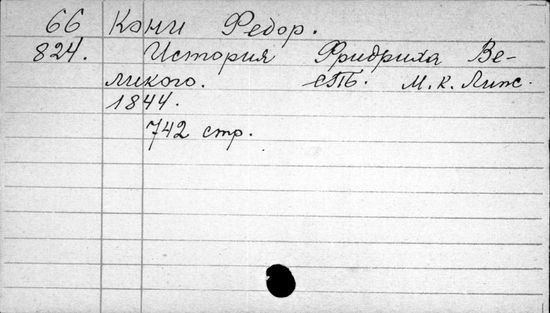 66 Кэни Федор.
824. История Фридриха Ве-
ликого. СПБ. М. К. Липс.
1844.
742 стр.